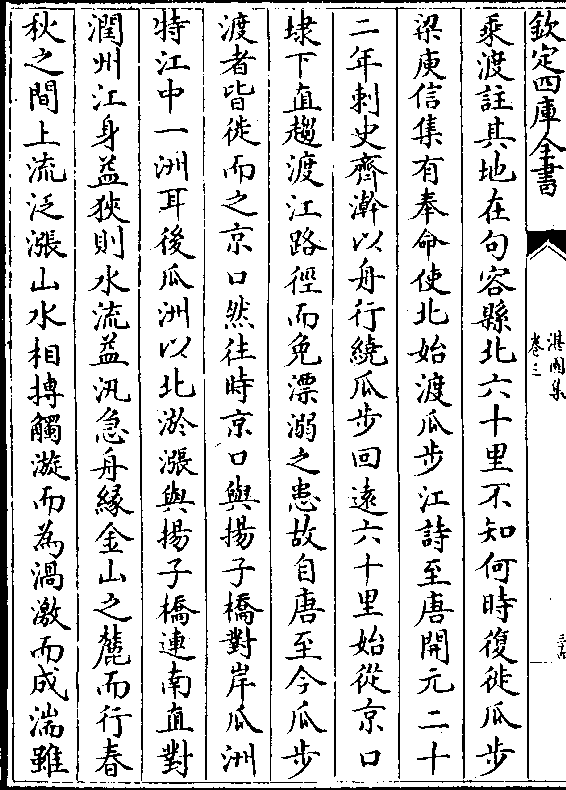 欽定四庫全書
湛園集
卷三
乘渡註其地在句容縣北六十里不知何時復徙瓜步
梁庾信集有奉命使北始渡瓜步江詩至唐開元二十
二年刺史齊澣以舟行繞瓜步回遠六十里始從京口
埭下直趨渡江路徑而免漂溺之患故自唐至今瓜步
渡者皆徙而之京口然往時京口與揚子橋對岸瓜洲
特江中一洲耳後瓜洲以北淤漲與揚子橋連南直對
潤州江身益狹則水流益汛急舟緣金山之麓而行春
秋之間上流泛漲山水相搏觸漩而為渦激而成湍雖